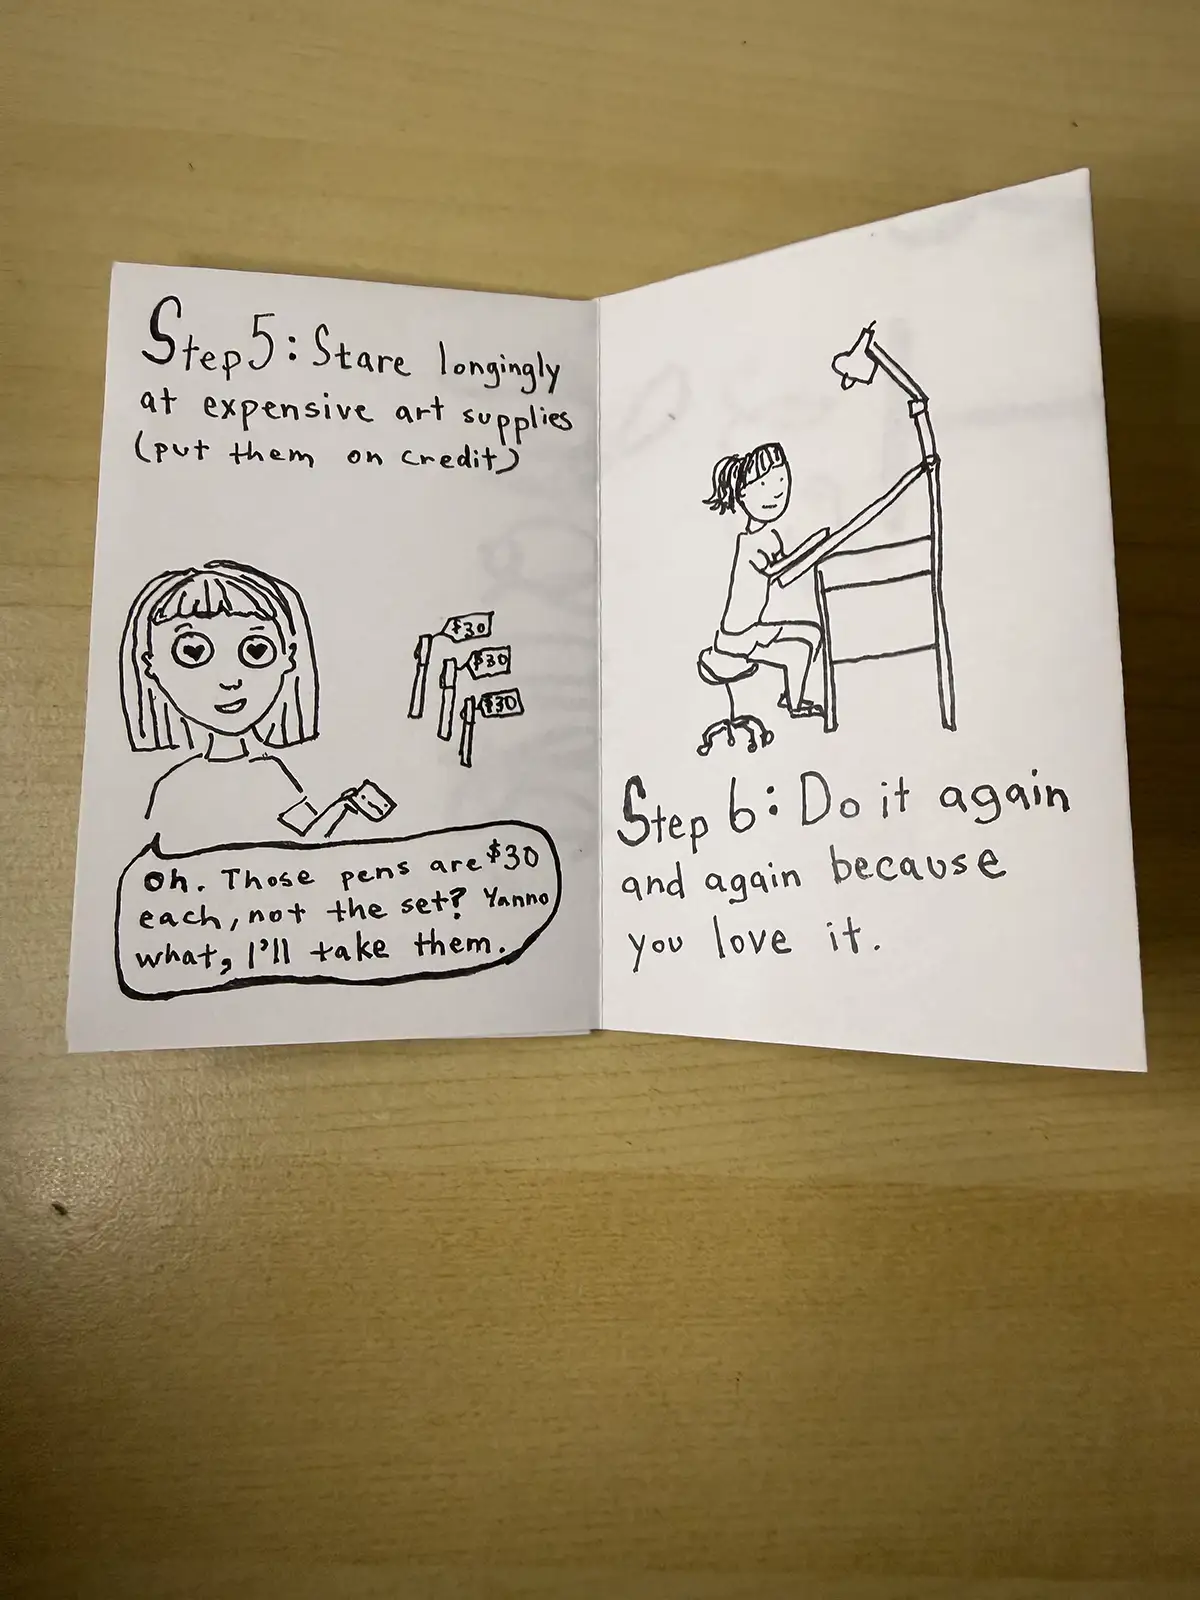 Step 5: Stare longingly
at expensive art supplies
(put them on credit)
$30
$30
$30
Oh. Those pens are $30
each, not the set? Yanno
what, I'll take them.
Step 6: Do it again
and again because
you love it.